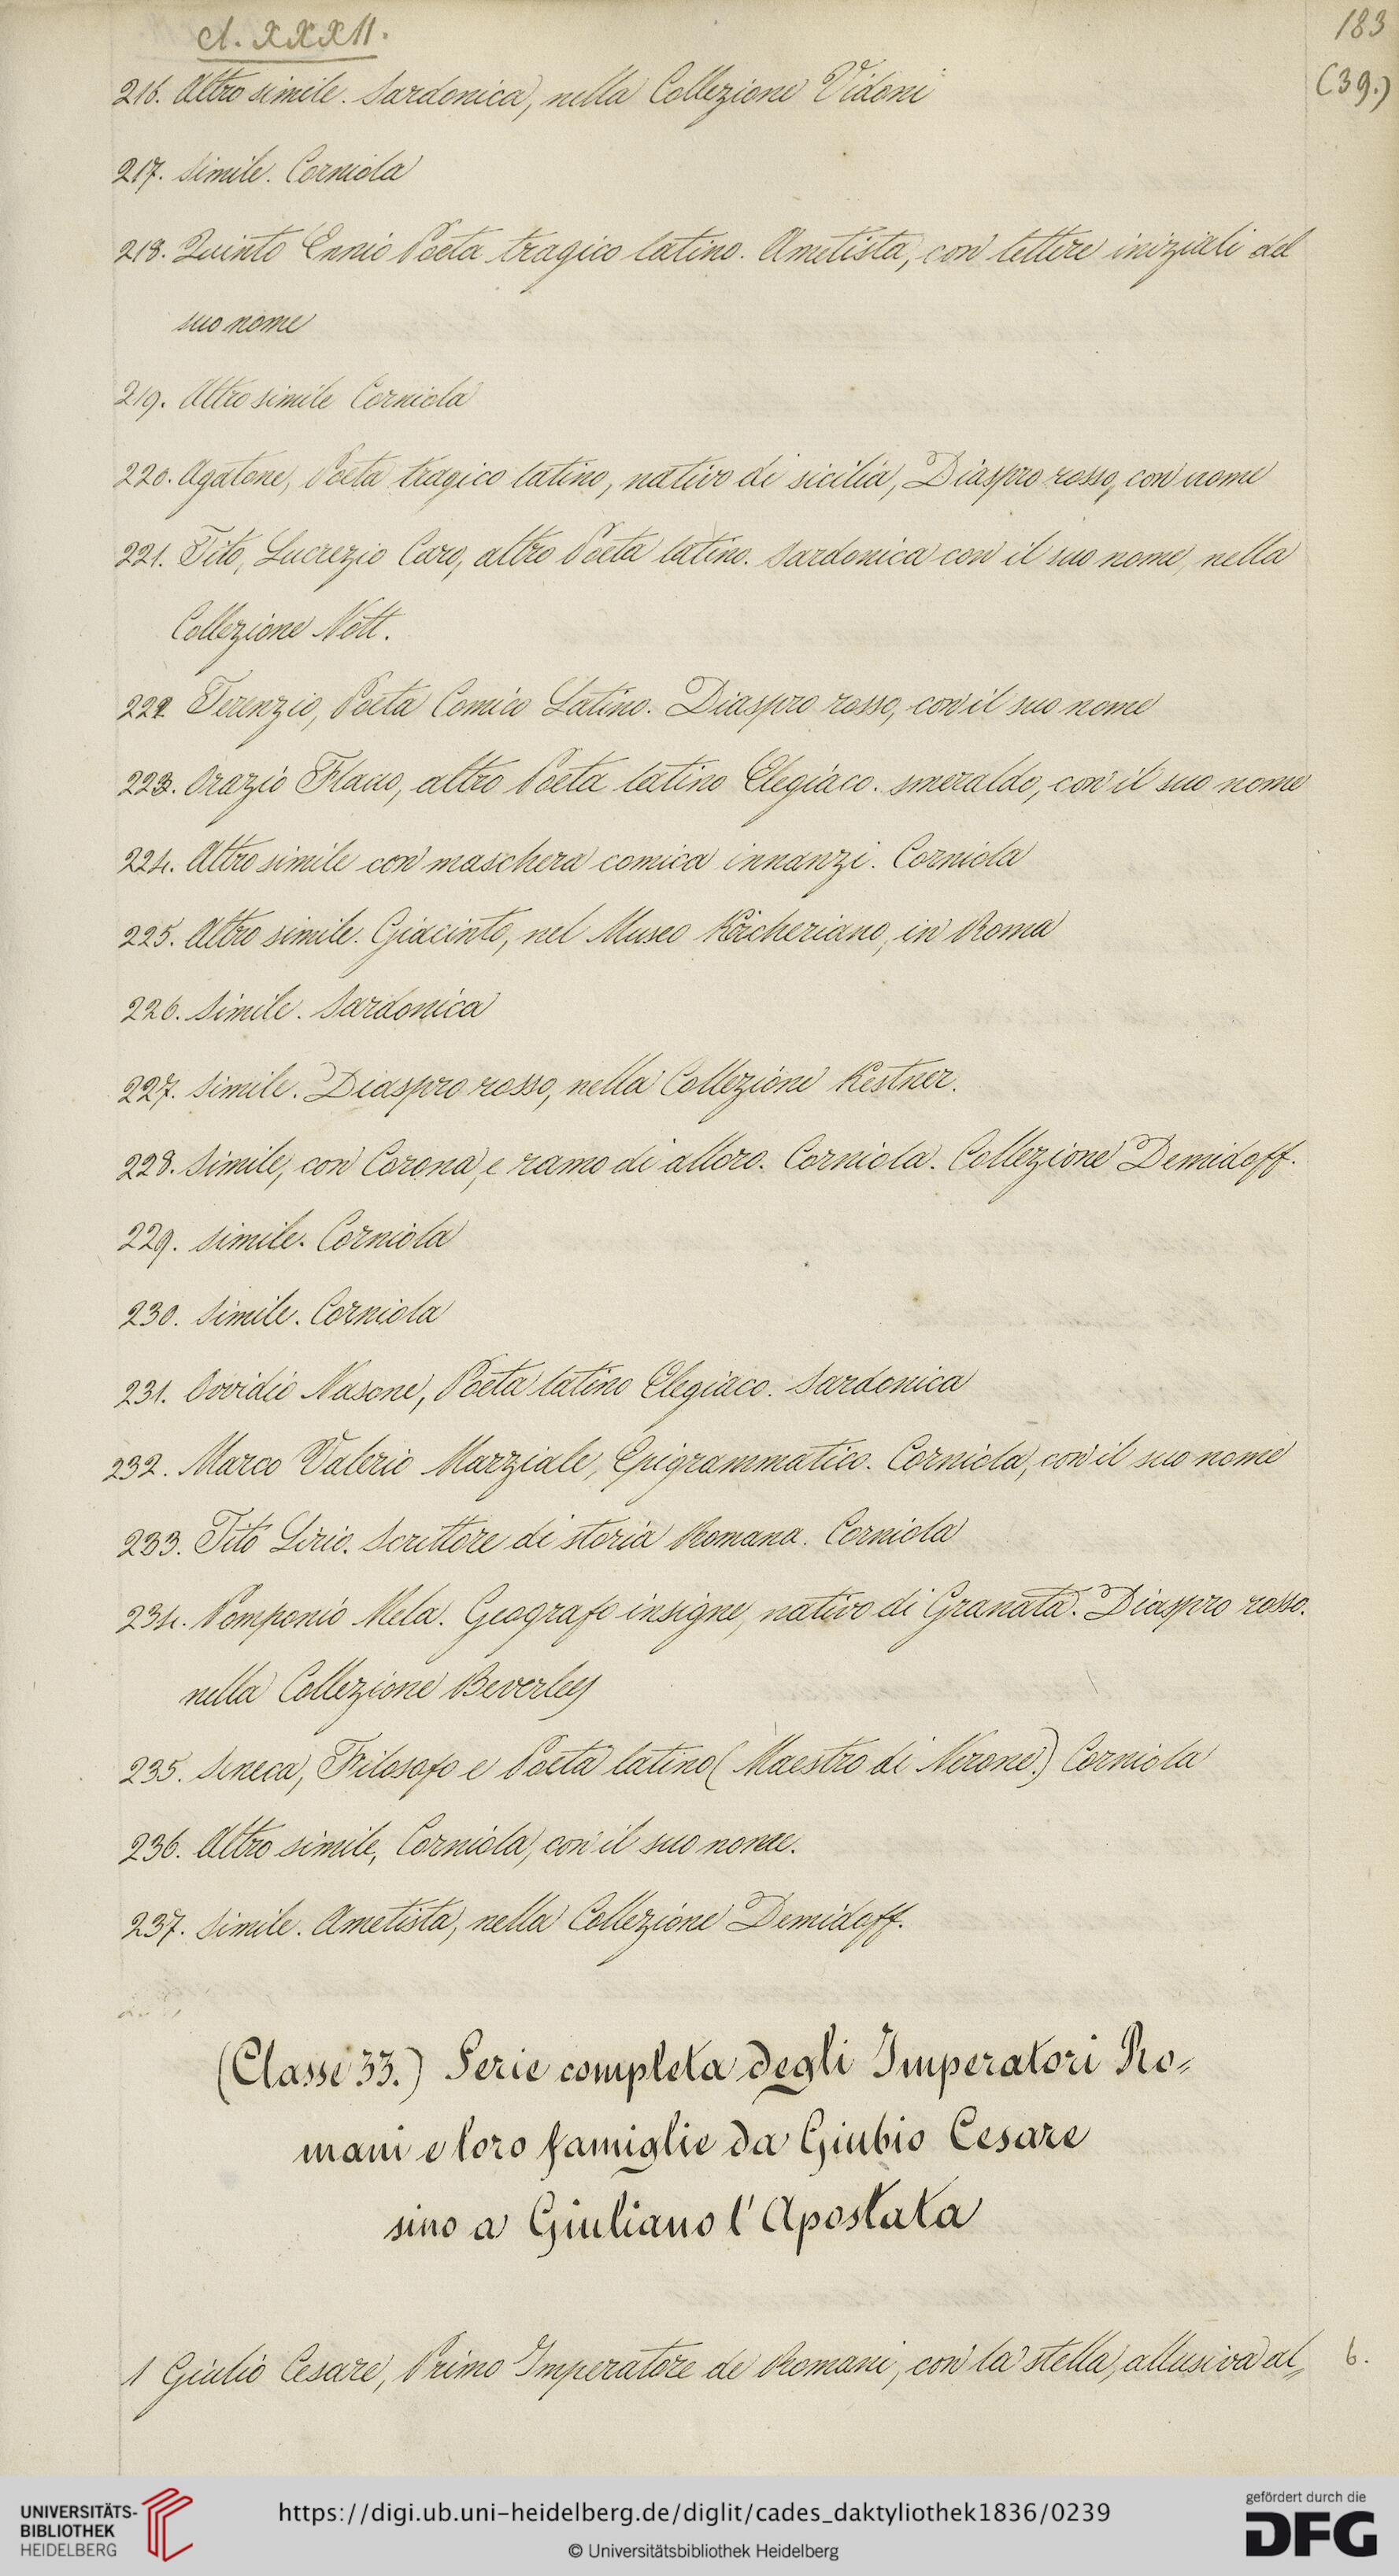 Cl. XXXII.
183
(39.)
216. Altro simile. Sardonica, nella Collezione Vidoni
217. Simile. Corniola
218. Quinto Ennio Poeta tragico latino. Ametista, con lettere iniziali del
suo nome
219. Altro simile Corniola
220. Agatone, Poeta tragico latino, nativo di sicilia, Diaspro rosso, con nome
221. Tito, Lucrezio Caro, altro Poeta latino. Sardonica con il suo nome, nella
Collezione Nott.
222 Terenzio, Poeta Comico Latino. Diaspro rosso, con il suo nome
223. Orazio Flacco, altro Poeta latino Elegiaco. smeraldo, con il suo nome
224. Altro simile con maschera comica innanzi. Corniola
225. Altro simile. Giacinto, nel Museo Kircheriano, in Roma
226. Simile. Sardonica
227. Simile. Diaspro rosso, nella Collezione Kestner.
228. Simile, con Corona, e ramo di alloro. Corniola. Collezione Demidoff.
229. Simile. Corniola
230. Simile. Corniola
231. Ovvidio Nasone, Poeta latino Elegiaco. Sardonica
232. Marco Valerio Marziale, Epigrammatico. Corniola, con il suo nome
233. Tito Livio. Scrittore di storia Romana. Corniola
234. Pomponio Mela. Geografo insigne, nativo di Granata. Diaspro rosso.
nella Collezione Beverley
235. Seneca, Filosofo e Poeta latino (Maestro di Nerone.) Corniola
236. Altro simile, Corniola, con il suo nome.
237. Simile. Ametista, nella Collezione Demidoff.
(Classe 33.) Serie completa degli Imperatori Ro=
mani e loro famiglie da Giulio Cesare
sino a Giuliano l'Apostata
1 Giulio Cesare, Primo Imperatore de Romani, con la stella, allusiva al= 6.
UNIVERSITÄTS-
BIBLIOTHEK
HEIDELBERG
https://digi.ub.uni-heidelberg.de/diglit/cades_daktyliothek1836/0239
© Universitätsbibliothek Heidelberg
gefördert durch die
DFG